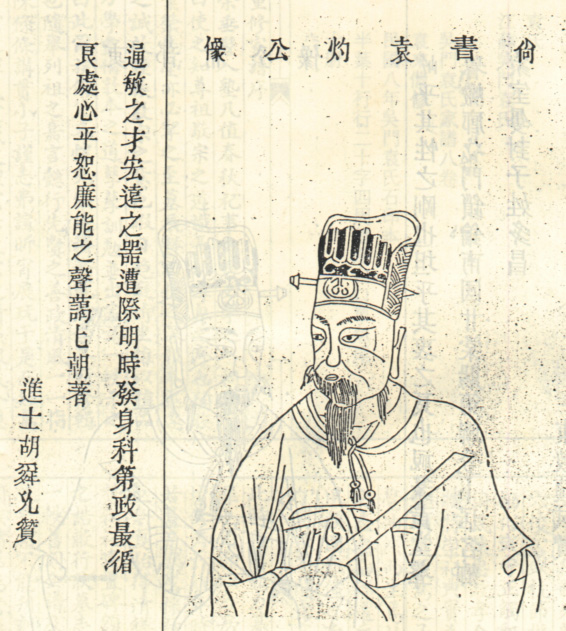 尙書袁灼公像
通敏之才宏遠之器遭際明時發身科第政最循
良處心平恕廉能之聲藹匕朝著
進士胡舜贊